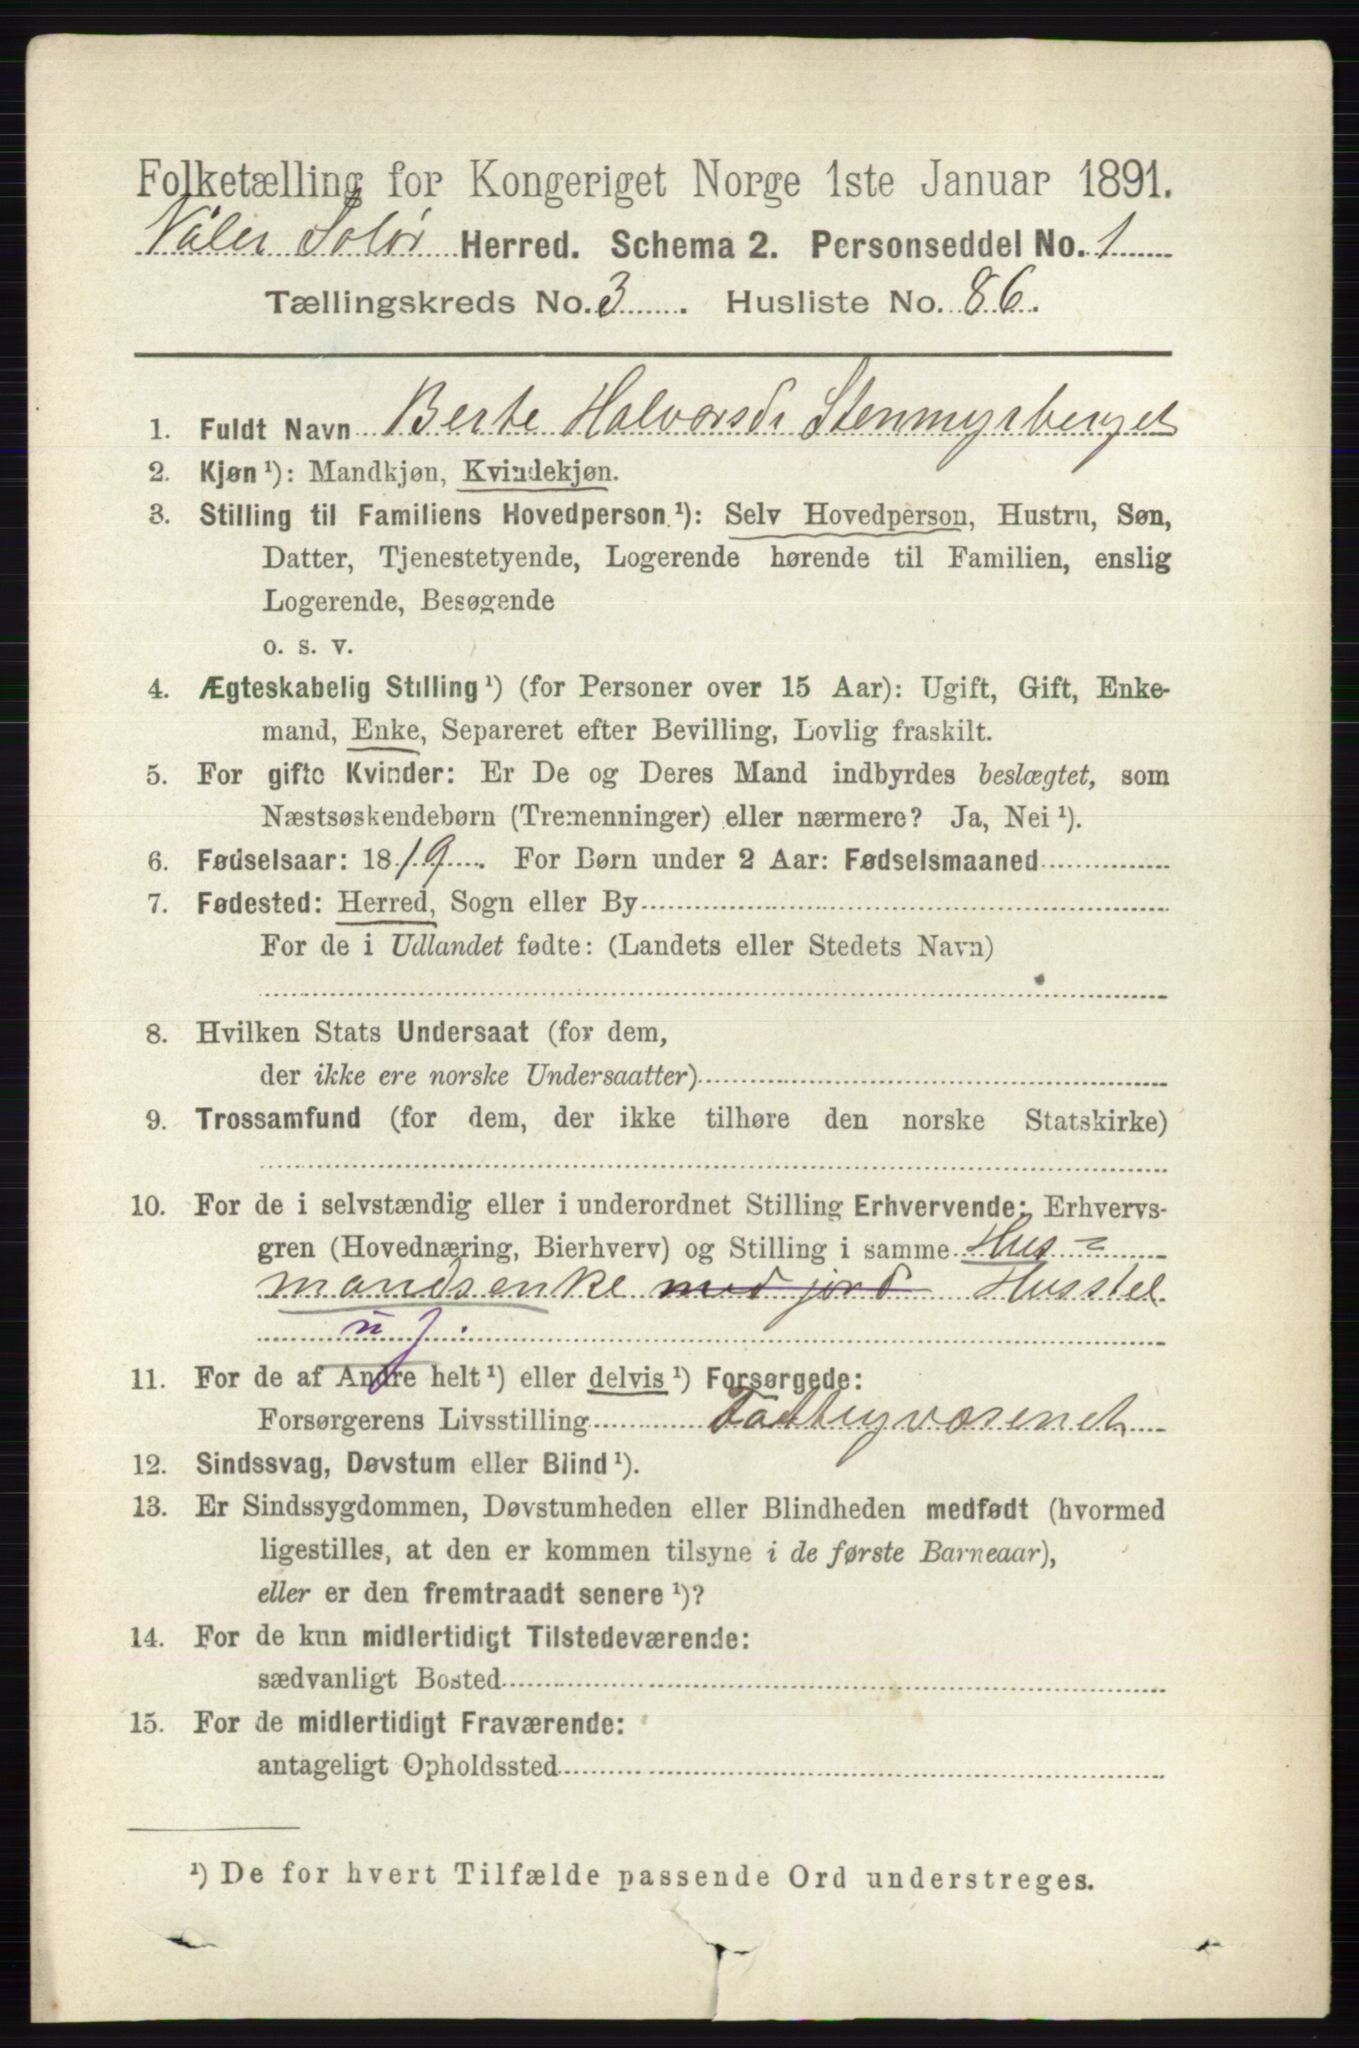 Folketælling for Kongeriget Norge 1ste Januar 1891.
Våler Solør Herred. Schema 2. Personseddel No. 1
Tællingskreds No. 3. Husliste No. 86.
1. Fuldt Navn Berte Halvorsdr Stenmyrberget
2. Kjøn ¹): Mandkjøn, Kvindekjøn.
3. Stilling til Familiens Hovedperson ¹): Selv Hovedperson, Hustru, Søn,
Datter, Tjenestetyende, Logerende hørende til Familien, enslig
Logerende, Besøgende
o. s. v.
4. Ægteskabelig Stilling ¹) (for Personer over 15 Aar): Ugift, Gift, Enke-
mand, Enke, Separeret efter Bevilling, Lovlig fraskilt.
5. For gifte Kvinder: Er De og Deres Mand indbyrdes beslægtet, som
Næstsøskendebørn (Tremenninger) eller nærmere? Ja, Nei ¹).
6. Fødselsaar: 1819. For Børn under 2 Aar: Fødselsmaaned
7. Fødested: Herred, Sogn eller By
For de i Udlandet fødte: (Landets eller Stedets Navn)
8. Hvilken Stats Undersaat (for dem,
der ikke ere norske Undersaatter)
9. Trossamfund (for dem, der ikke tilhøre den norske Statskirke)
10. For de i selvstændig eller i underordnet Stilling Erhvervende: Erhvervs-
gren (Hovednæring, Bierhverv) og Stilling i samme Hus=
mandsenke med jord Husstel
u j.
11. For de af Andre helt ¹) eller delvis ¹) Forsørgede:
Forsørgerens Livsstilling Fattigvæsenet
12. Sindssvag, Døvstum eller Blind ¹).
13. Er Sindssygdommen, Døvstumheden eller Blindheden medfødt (hvormed
ligestilles, at den er kommen tilsyne i de første Barneaar),
eller er den fremtraadt senere ¹)?
14. For de kun midlertidigt Tilstedeværende:
sædvanligt Bosted
15. For de midlertidigt Fraværende:
antageligt Opholdssted
¹) De for hvert Tilfælde passende Ord understreges.